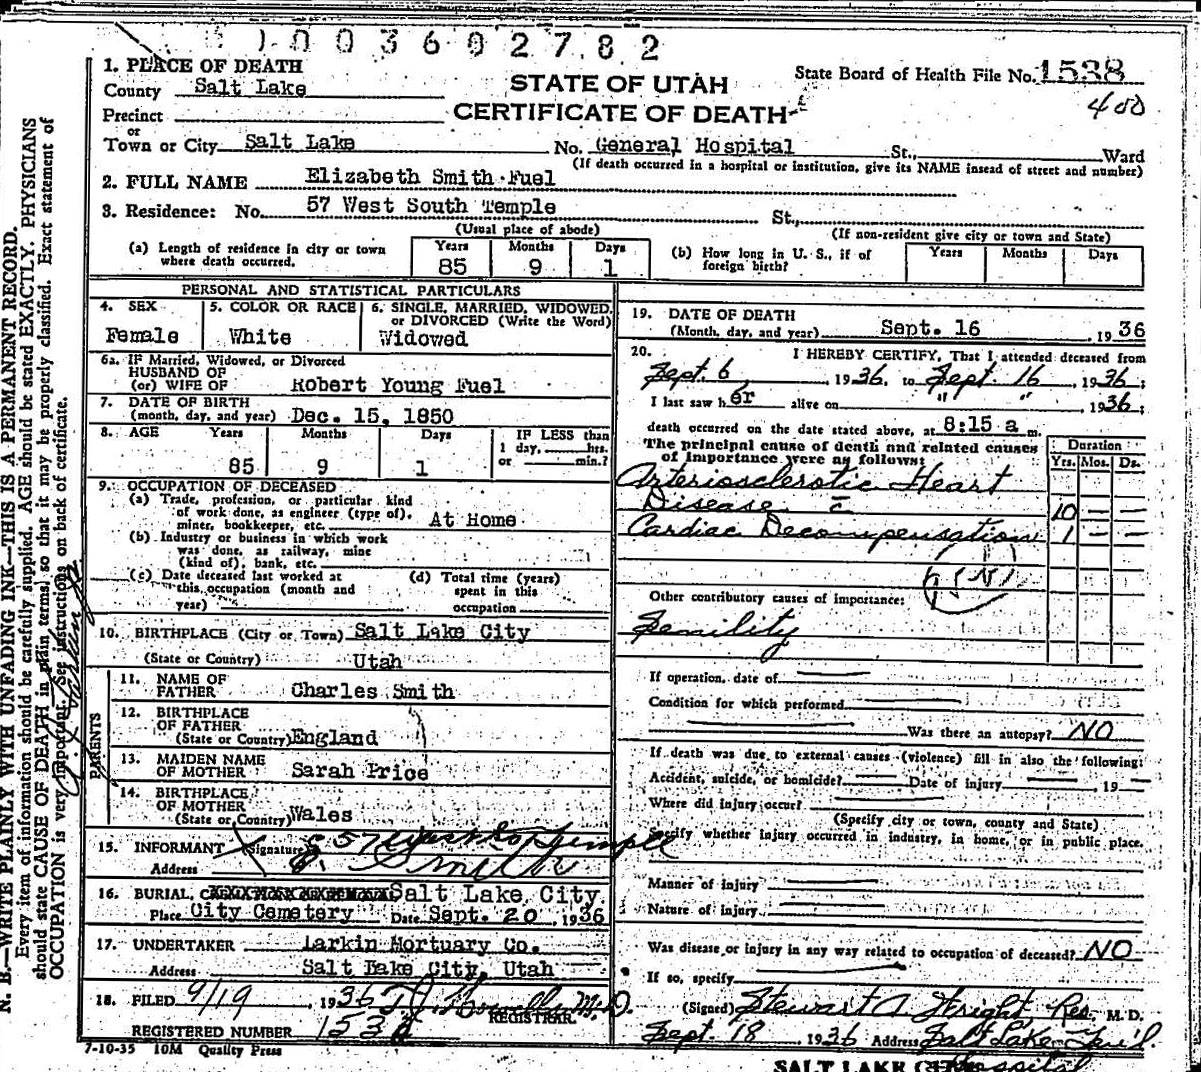 1003602782
1. PLACE OF DEATH
County Salt Lake
STATE OF UTAH
State Board of Health File No. 1538
Precinct
CERTIFICATE OF DEATH
400
or
Town or City Salt Lake No. General Hospital St., Ward
(If death occurred in a hospital or institution, give its NAME insead of street and number)
2. FULL NAME Elizabeth Smith Fuel
3. Residence: No. 57 West South Temple St.,
(Usual place of abode) (If non-resident give city or town and State)
(a) Length of residence in city or town where death occurred. Years Months Days
85 9 1
(b) How long in U. S., if of foreign birth? Years Months Days
PERSONAL AND STATISTICAL PARTICULARS
4. SEX 5. COLOR OR RACE 6. SINGLE, MARRIED, WIDOWED, or DIVORCED (Write the Word)
Female White Widowed
6a. IF Married, Widowed, or Divorced
HUSBAND OF
(or) WIFE OF Robert Young Fuel
7. DATE OF BIRTH
(month, day, and year) Dec. 15, 1850
8. AGE Years Months Days IF LESS than
1 day, hrs.
85 9 1 or min.?
9. OCCUPATION OF DECEASED
(a) Trade, profession, or particular kind
of work done, as engineer (type of),
miner, bookkeeper, etc. At Home
(b) Industry or business in which work
was done, as railway, mine
(kind of), bank, etc.
(c) Date deceased last worked at
this occupation (month and
year)
(d) Total time (years)
spent in this
occupation
10. BIRTHPLACE (City or Town) Salt Lake City
(State or Country) Utah
PARENTS
11. NAME OF
FATHER Charles Smith
12. BIRTHPLACE
OF FATHER
(State or Country) England
13. MAIDEN NAME
OF MOTHER Sarah Price
14. BIRTHPLACE
OF MOTHER
(State or Country) Wales
15. INFORMANT (Signature) 57 West So Temple
Address Smith
16. BURIAL, Salt Lake City
Place City Cemetery Date Sept. 20 1936
17. UNDERTAKER Larkin Mortuary Co.
Address Salt Lake City, Utah
18. FILED 9/19, 1936 M.D.
REGISTRAR.
REGISTERED NUMBER 1538
7-10-35 10M Quality Press
19. DATE OF DEATH
(Month, day, and year) Sept. 16 1936
20. I HEREBY CERTIFY, That I attended deceased from
Sept. 6, 1936, to Sept. 16, 1936;
I last saw her alive on " ", 1936;
death occurred on the date stated above, at 8:15 a m.
The principal cause of death and related causes
of importance were as follows: Duration
Yrs. Mos. Ds.
Arteriosclerotic Heart
Disease c̄ 10 — —
Cardiac Decompensation 1 — —
Other contributory causes of importance:
Senility
If operation, date of
Condition for which performed
Was there an autopsy? NO
If death was due to external causes (violence) fill in also the following:
Accident, suicide, or homicide? Date of injury 19
Where did injury occur?
(Specify city or town, county and State)
Specify whether injury occurred in industry, in home, or in public place.
Manner of injury
Nature of injury
Was disease or injury in any way related to occupation of deceased? NO
If so, specify
(Signed) Stewart A Wright Res. M. D.
Sept. 18 1936 Address Salt Lake Gen'l
Hospital
SALT LAKE CITY
N. B.—WRITE PLAINLY WITH UNFADING INK—THIS IS A PERMANENT RECORD.
Every item of information should be carefully supplied. AGE should be stated EXACTLY. PHYSICIANS
should state CAUSE OF DEATH in plain terms, so that it may be properly classified. Exact statement of
OCCUPATION is very important. See instructions on back of certificate.